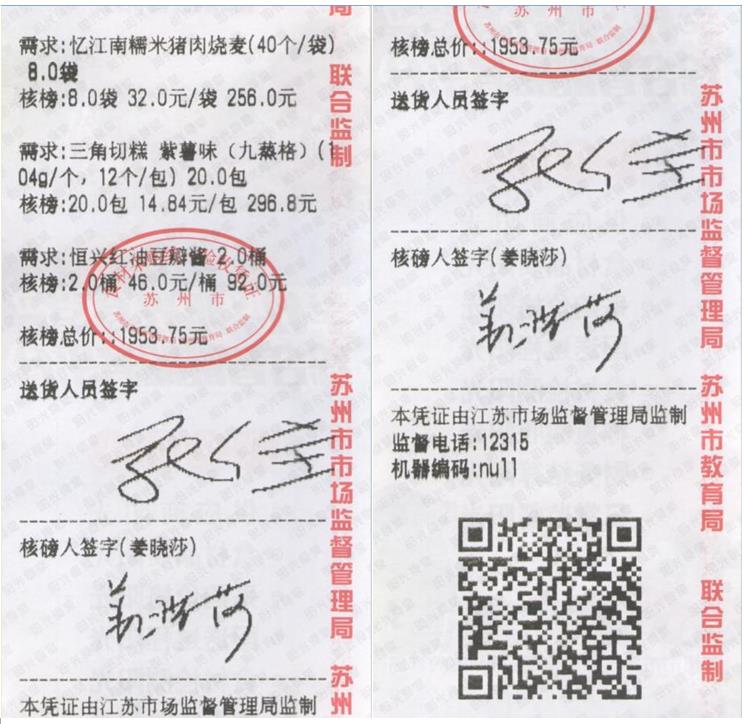 需求:忆江南糯米猪肉烧麦(40个/袋)
8.0袋
核榜:8.0袋 32.0元/袋 256.0元
需求:三角切糕 紫薯味（九蒸格）(1
04g/个，12个/包) 20.0包
核榜:20.0包 14.84元/包 296.8元
需求:恒兴红油豆瓣酱 2.0桶
核榜:2.0桶 46.0元/桶 92.0元
苏州市
核榜总价::1953.75元
送货人员签字
核磅人签字(姜晓莎)
本凭证由江苏市场监督管理局监制
局
联合监制
苏州市市场监督管理局
苏州
苏州市
核榜总价::1953.75元
送货人员签字
核磅人签字(姜晓莎)
本凭证由江苏市场监督管理局监制
监督电话:12315
机器编码:null
苏州市市场监督管理局
苏州市教育局
联合监制